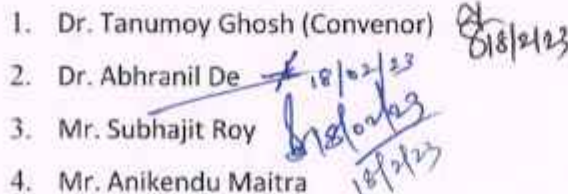 1. Dr. Tanumoy Ghosh (Convenor) 18/2/23
2. Dr. Abhranil De 18/02/23
3. Mr. Subhajit Roy 18/02/23
4. Mr. Anikendu Maitra 18/2/23